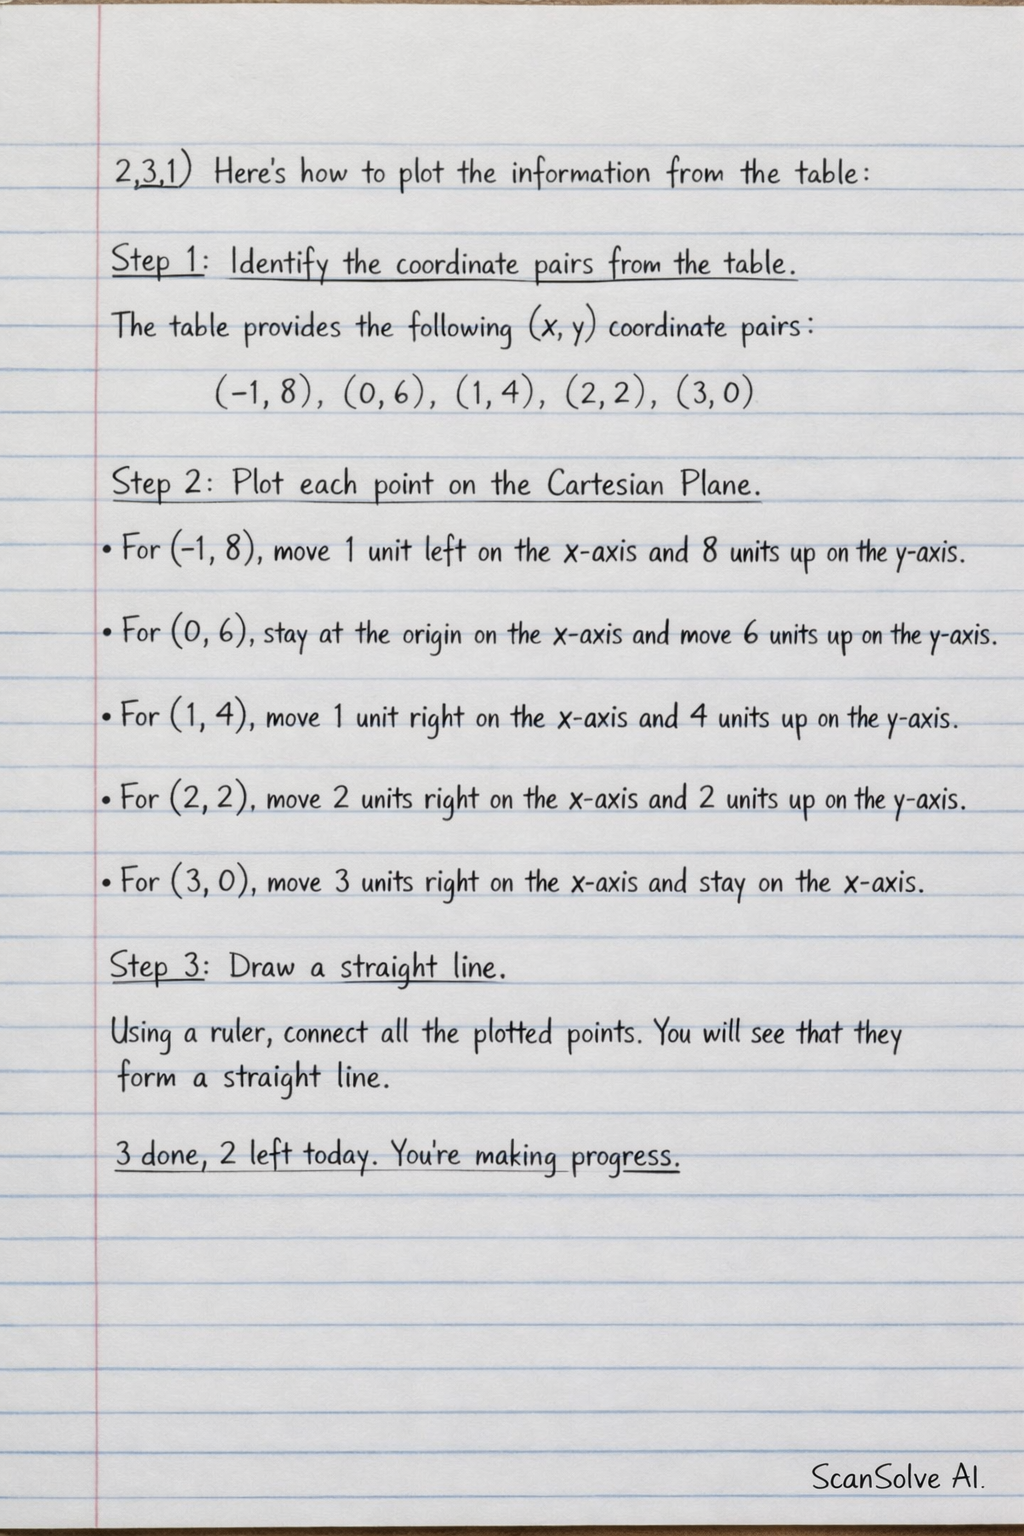 2,3,1) Here's how to plot the information from the table:
Step 1: Identify the coordinate pairs from the table.
The table provides the following (x, y) coordinate pairs:
(-1, 8), (0, 6), (1, 4), (2, 2), (3, 0)
Step 2: Plot each point on the Cartesian Plane.
• For (-1, 8), move 1 unit left on the x-axis and 8 units up on the y-axis.
• For (0, 6), stay at the origin on the x-axis and move 6 units up on the y-axis.
• For (1, 4), move 1 unit right on the x-axis and 4 units up on the y-axis.
• For (2, 2), move 2 units right on the x-axis and 2 units up on the y-axis.
• For (3, 0), move 3 units right on the x-axis and stay on the x-axis.
Step 3: Draw a straight line.
Using a ruler, connect all the plotted points. You will see that they
form a straight line.
3 done, 2 left today. You're making progress.
ScanSolve AI.